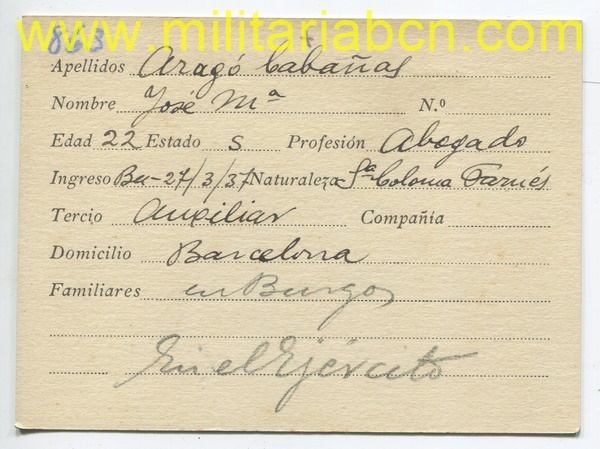 www.militariabcn.com
863
Apellidos Aragó Cabañas
Nombre José Mª N.º
Edad 22 Estado S Profesión Abogado
Ingreso Bu-27/3/37 Naturaleza Sª Coloma Farnés
Tercio Auxiliar Compañía
Domicilio Barcelona
Familiares en Burgos
En el Ejército